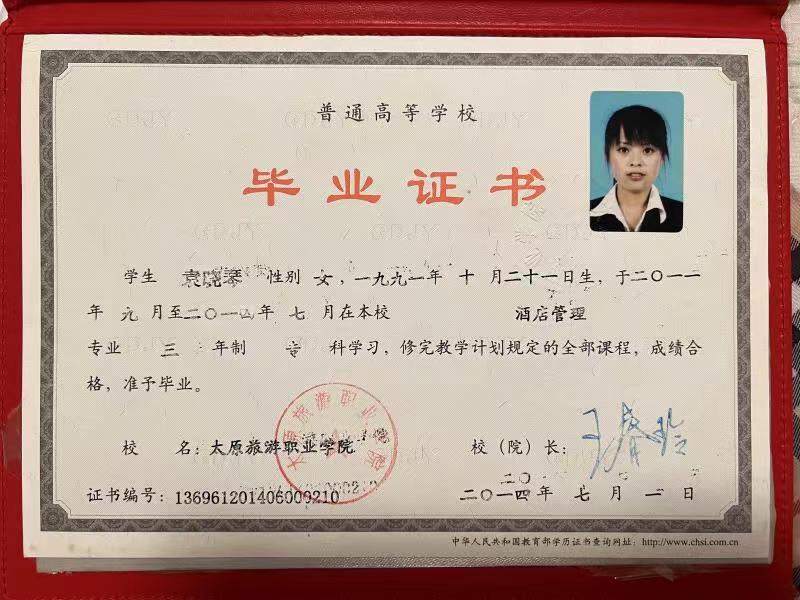 普通高等学校
毕业证书
学生 袁晓琴 性别 女，一九九一年 十 月二十一日生，于二〇一一
年 九 月至二〇一四年 七 月在本校 酒店管理
专业 三 年制 专 科学习，修完教学计划规定的全部课程，成绩合
格，准予毕业。
太原旅游职业学院
校 名：太原旅游职业学院 校（院）长：
证书编号：136961201406000210 二〇一四年 七 月 一 日
中华人民共和国教育部学历证书查询网址：http://www.chsi.com.cn